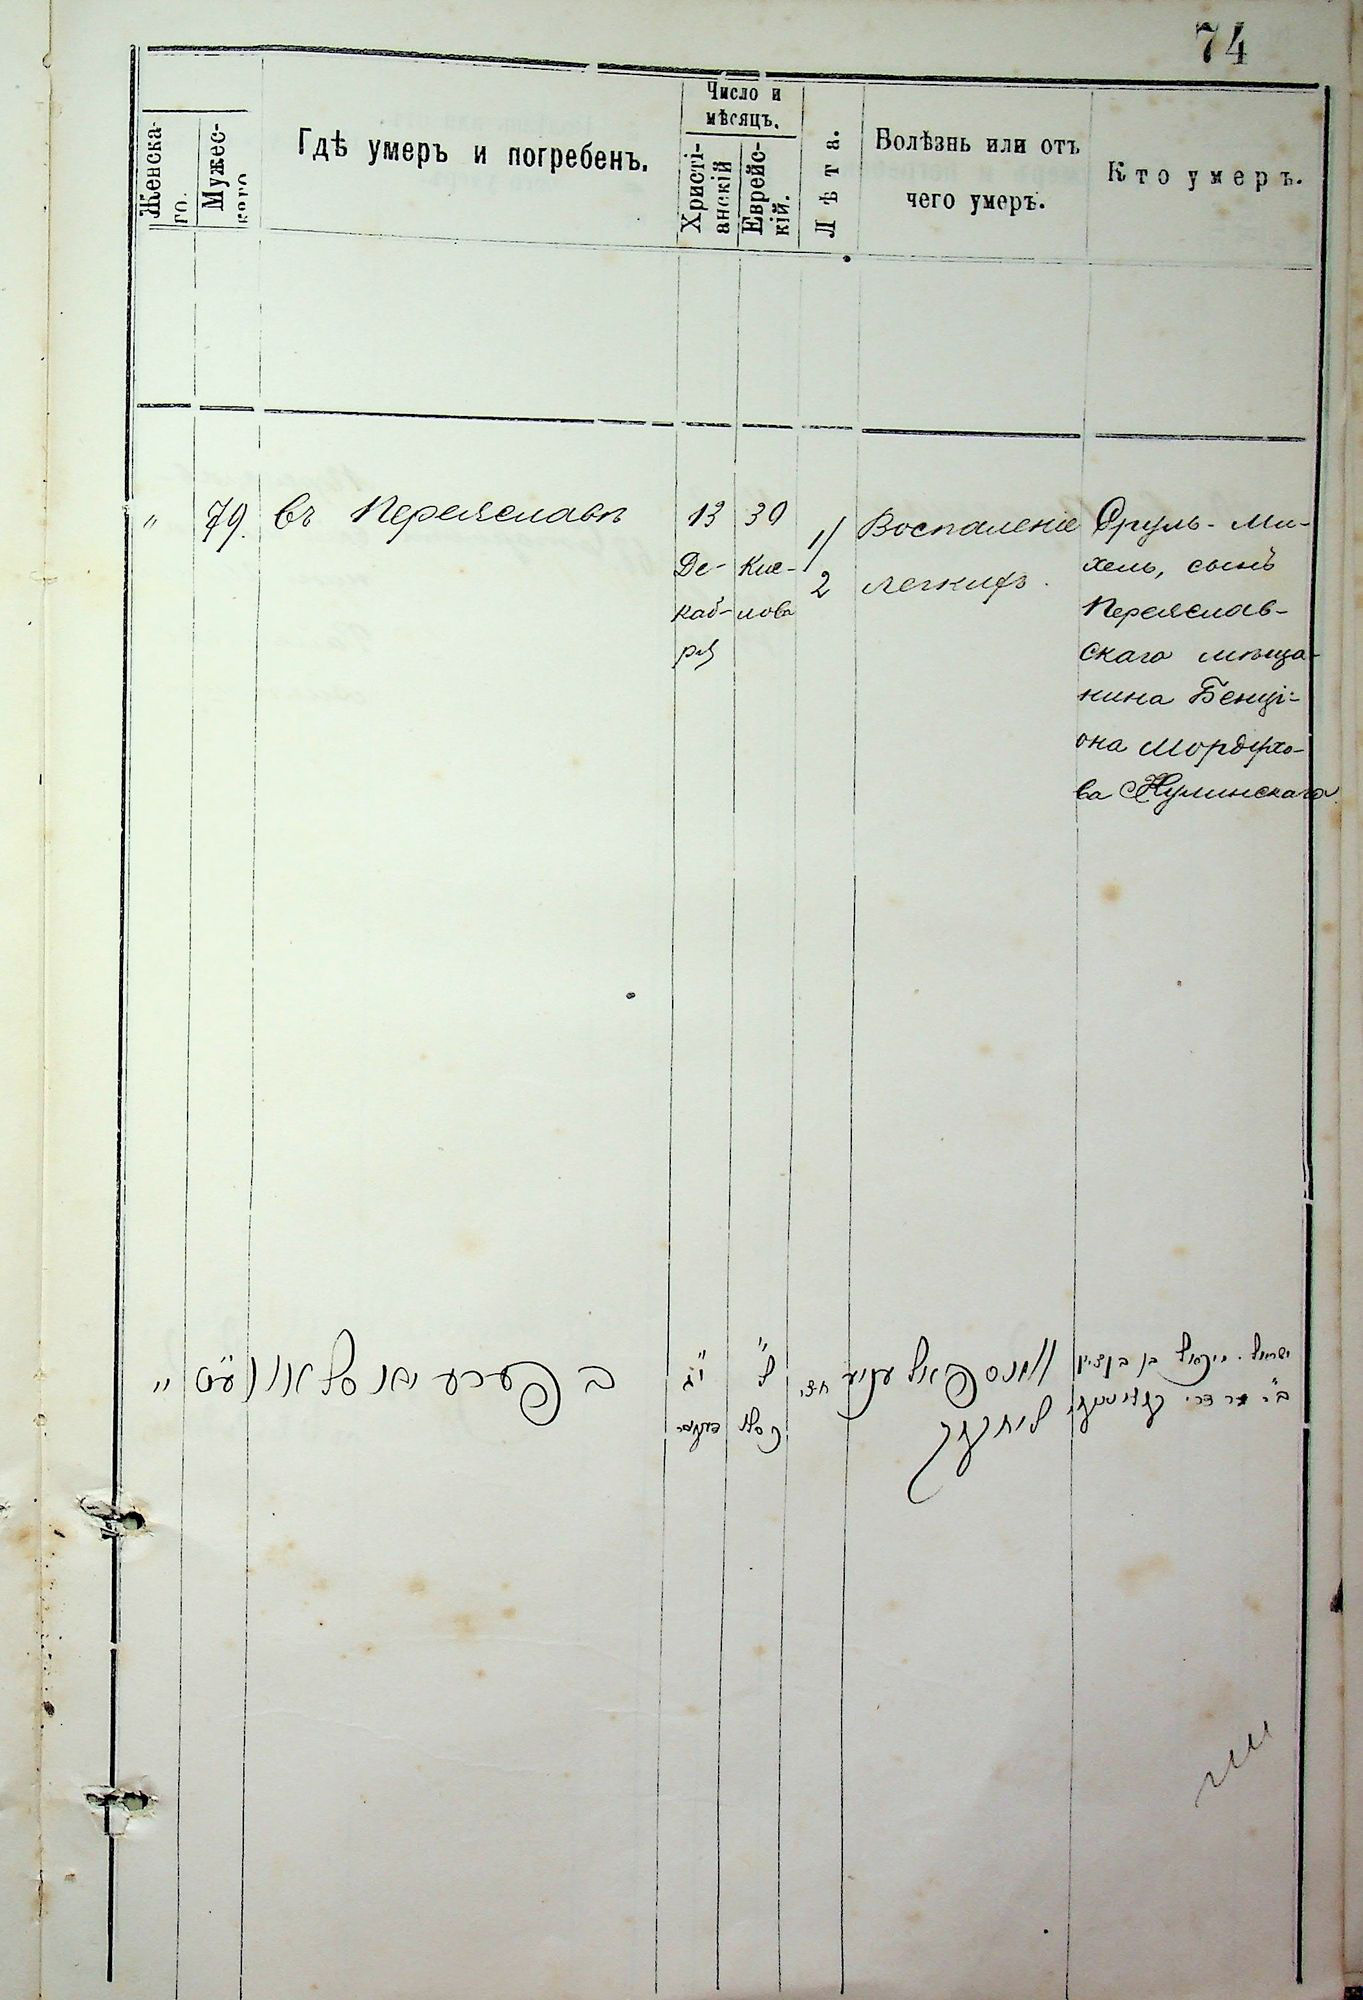 74
Женска-
го.
Мужес-
каго
Гдѣ умеръ и погребенъ.
Число и
мѣсяцъ.
Христі-
анскій
Еврейс-
кій.
Лѣта.
Болѣзнь или отъ
чего умеръ.
Кто умеръ.
" 79. въ Переяславѣ
13
Де-
каб-
ря
30
Кис-
лова
1/
2
Воспаленіе
легкихъ.
Сруль-Ми-
хель, сынъ
Переяслав-
скаго мѣща-
нина Бенці-
она Мордухо-
ва Кулинскаго
" עט
ב פערעיאסלאוו
י"ג
דעקאבר
ל"
כסלו
חצי
ישראל מיכאל בן בן ציון